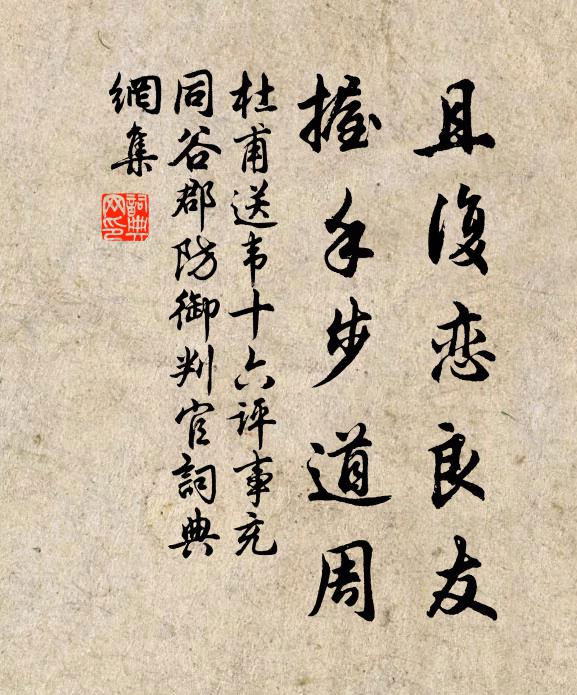 且復恋良友
握手步道周
杜甫送韦十六评事充
同谷郡防御判官詞典
網集
詞典
网印